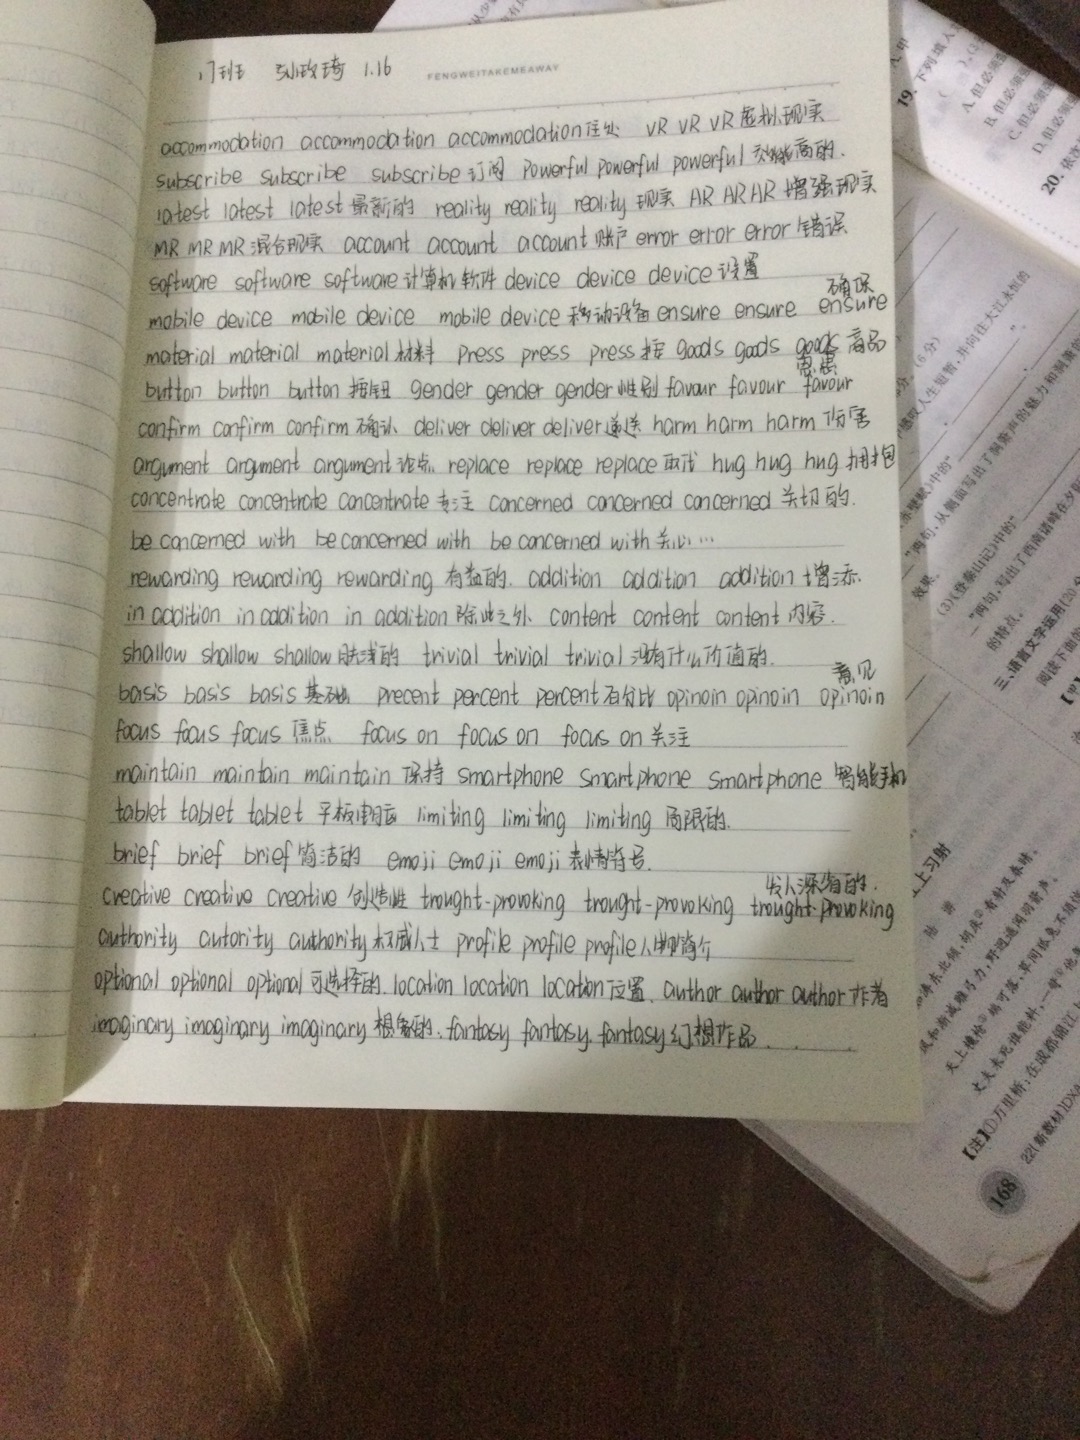 17班 孙玫琦 1.16 FENGWEITAKEMEAWAY
accommodation accommodation accommodation住处 VR VR VR虚拟现实
subscribe subscribe subscribe订阅 Powerful powerful powerful 效能高的.
latest latest latest最新的 reality reality reality 现实 AR AR AR 增强现实
MR MR MR混合现实 account account account账户 error error error 错误
software software software计算机软件 device device device设置
确保
mobile device mobile device mobile device 移动设备 ensure ensure ensure
material material material材料 press press press按 goods goods goods 商品
恩惠
button button button 按钮 gender gender gender性别 favour favour favour
confirm confirm confirm确认 deliver deliver deliver递送 harm harm harm 伤害
argument argument argument论点 replace replace replace取代 hug hug hug 拥抱
concentrate concentrate concentrate专注 concerned concerned concerned 关切的.
be concerned with be concerned with be concerned with关心…
rewarding rewarding rewarding 有益的. addition addition addition 增添.
in addition in addition in addition除此之外 content content content内容.
shallow shallow shallow肤浅的 trivial trivial trivial没有什么价值的.
意见
basis basis basis 基础 precent percent percent百分比 opinoin opinoin opinoin
focus focus focus 焦点 focus on focus on focus on关注
maintain maintain maintain 保持 smartphone smartphone smartphone 智能手机
tablet tablet tablet 平板电脑 limiting limiting limiting 局限的.
brief brief brief简洁的 emoji emoji emoji表情符号.
发人深省的.
creative creative creative 创造性 trought-provoking trought-provoking trought-provoking
authority autority authority权威人士 profile profile profile人物简介
optional optional optional可选择的. location location location位置. author author author作者
imaginary imaginary imaginary想象的. fantasy fantasy. fantasy幻想作品.
19. 下列填入
A. 但必须
B. 但必须
C. 但必须
D. 但必须
20. 依次
(6分)
《登泰山记》中的"
"两句,写出了西南诸峰在夕阳
的特点。
三、语言文字运用(20分
阅读下面的
上习射
陆 游
【注】①万里桥:在成都锦江上
168